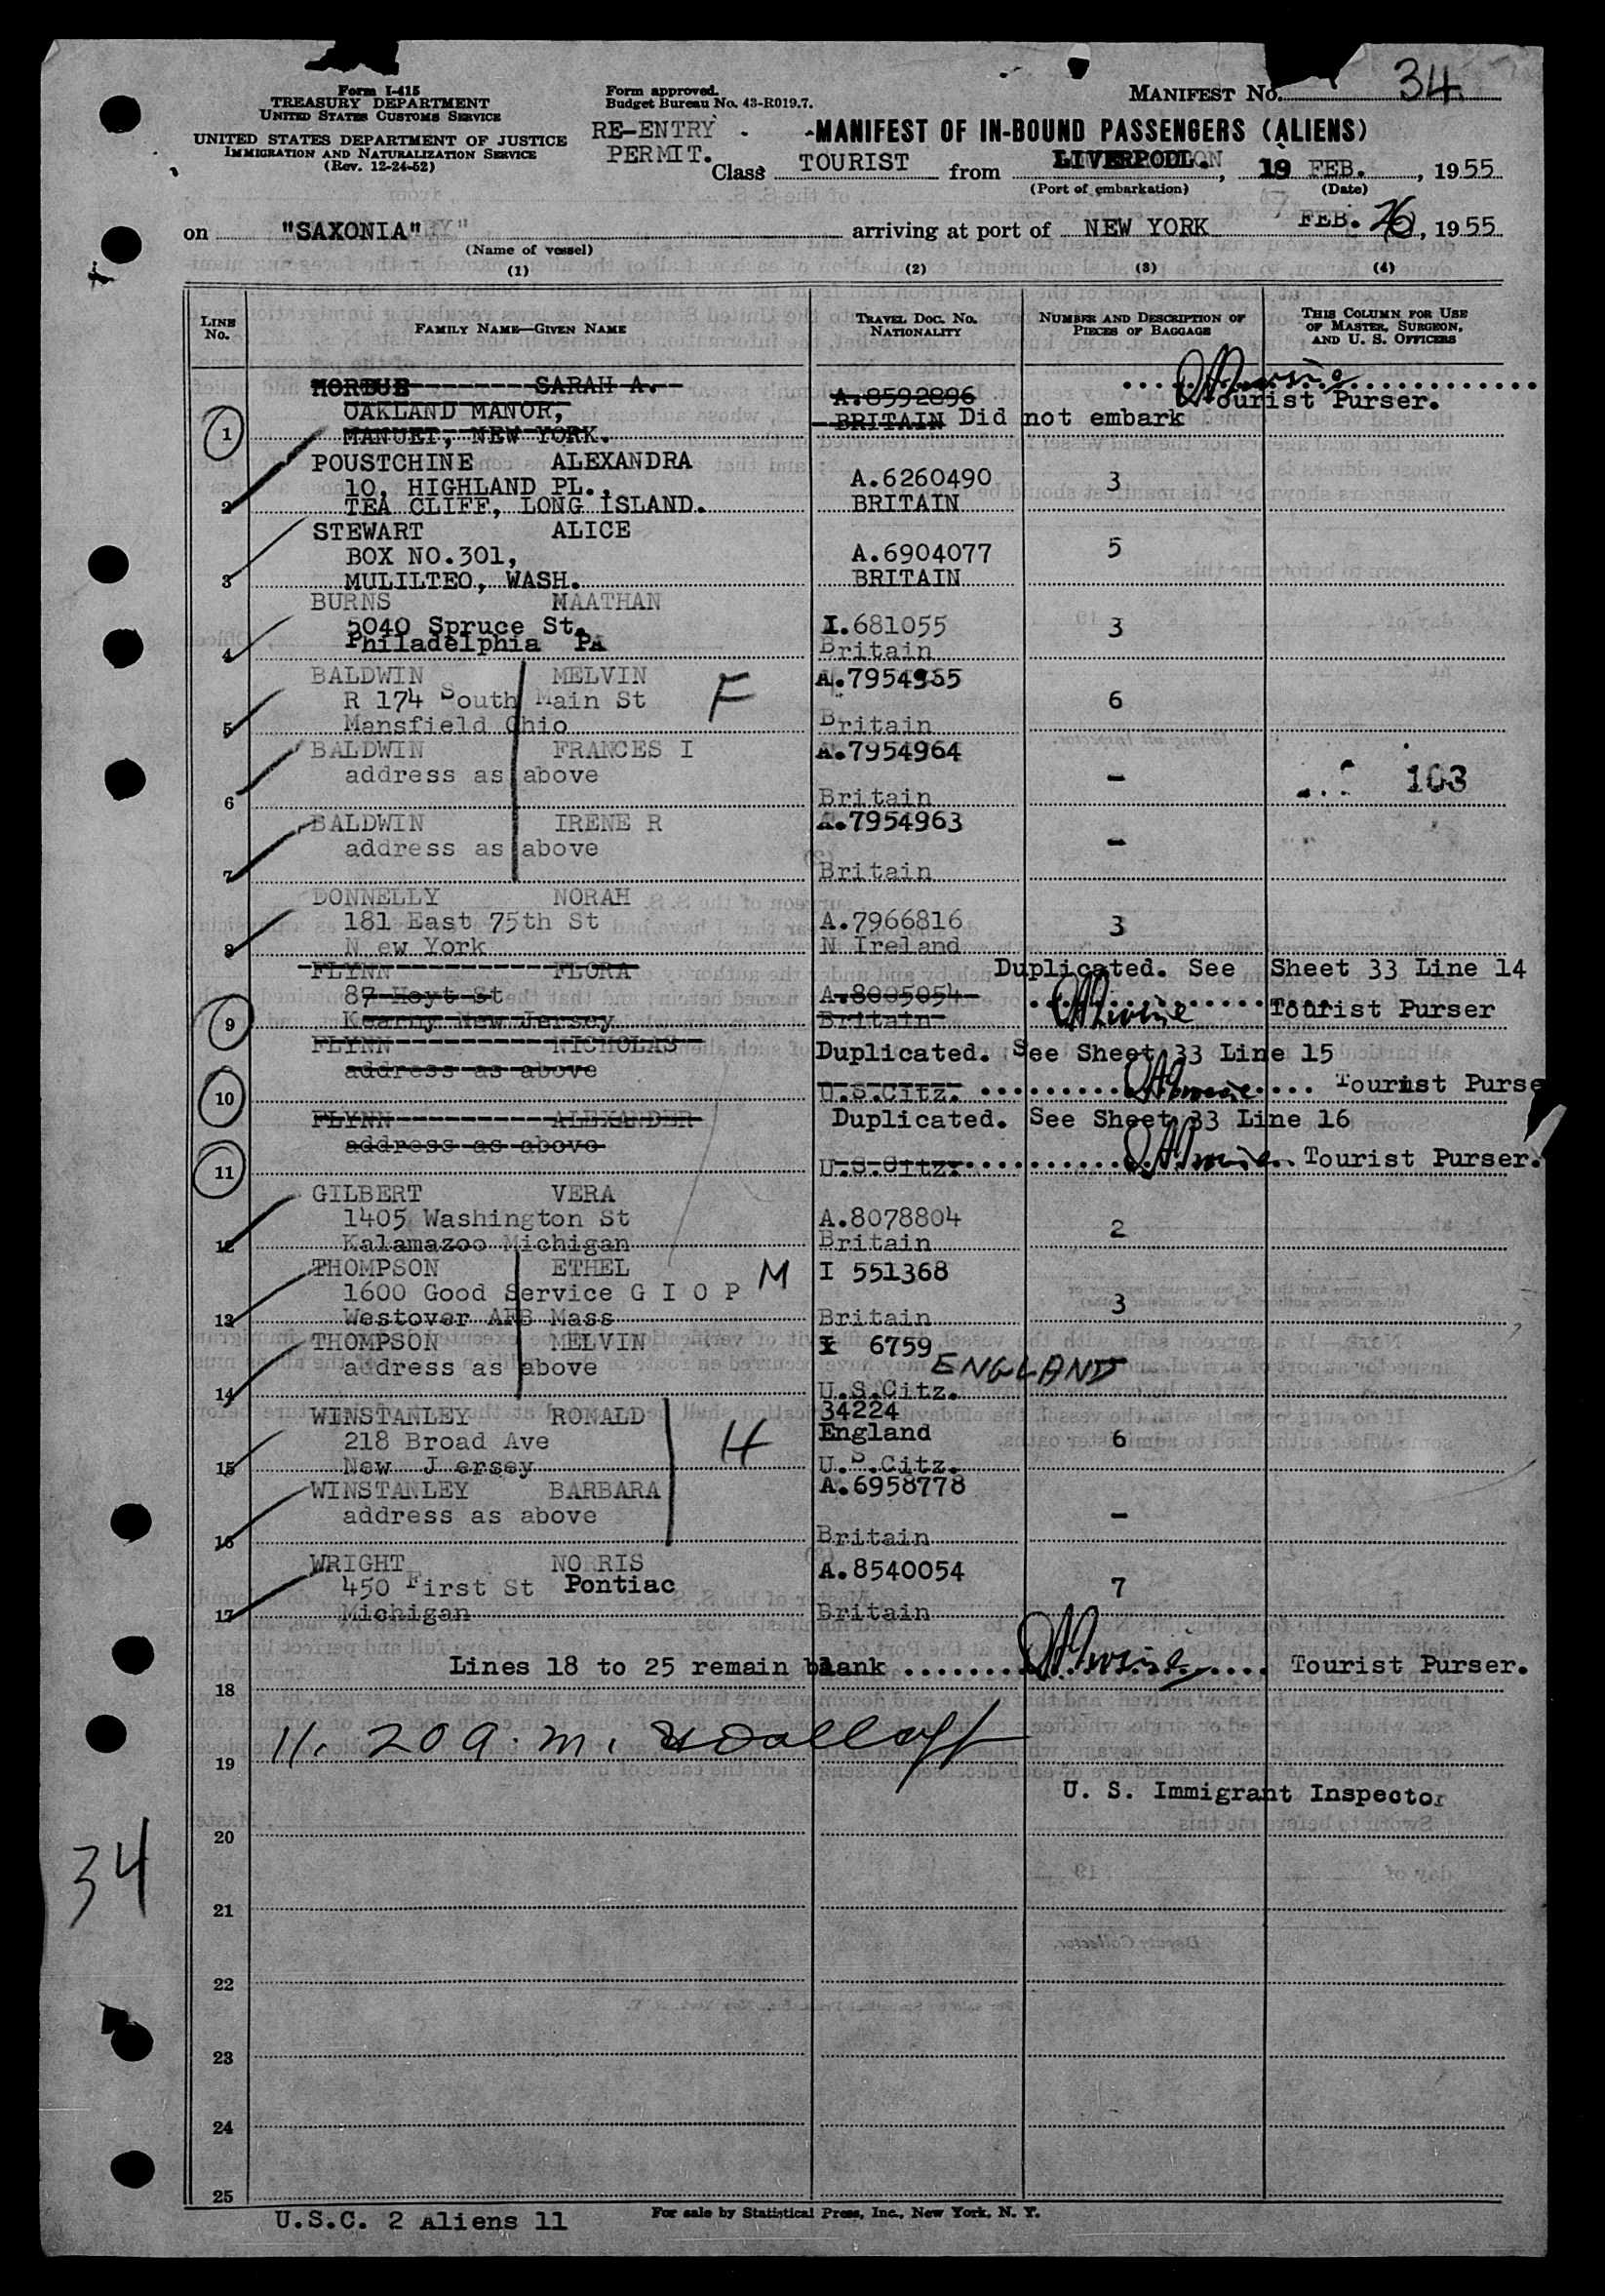 Form I-415
TREASURY DEPARTMENT
UNITED STATES CUSTOMS SERVICE
UNITED STATES DEPARTMENT OF JUSTICE
IMMIGRATION AND NATURALIZATION SERVICE
(Rev. 12-24-52)
Form approved.
Budget Bureau No. 43-R019.7.
MANIFEST No. 34
RE-ENTRY PERMIT.
MANIFEST OF IN-BOUND PASSENGERS (ALIENS)
Class TOURIST from LIVERPOOL. , 19 FEB. , 1955
(Port of embarkation) (Date)
on "SAXONIA" arriving at port of NEW YORK FEB. 26, 1955
(Name of vessel)
(1) (2) (3) (4)
LINE No. FAMILY NAME—GIVEN NAME TRAVEL DOC. NO. NATIONALITY NUMBER AND DESCRIPTION OF PIECES OF BAGGAGE THIS COLUMN FOR USE OF MASTER, SURGEON, AND U. S. OFFICERS
MORDUE SARAH A.
OAKLAND MANOR, A.8592896 Tourist Purser.
1 MANUET, NEW YORK. BRITAIN Did not embark
POUSTCHINE ALEXANDRA
10, HIGHLAND PL., A.6260490 3
2 TEA CLIFF, LONG ISLAND. BRITAIN
STEWART ALICE
BOX NO.301, A.6904077 5
3 MULILTEO, WASH. BRITAIN
BURNS MAATHAN
5040 Spruce St. I.681055 3
4 Philadelphia PA Britain
BALDWIN MELVIN A.7954965
R 174 South Main St F 6
5 Mansfield Ohio Britain
BALDWIN FRANCES I A.7954964
address as above - 103
6 Britain
BALDWIN IRENE R A.7954963
address as above -
7 Britain
DONNELLY NORAH
181 East 75th St A.7966816 3
8 N ew York N Ireland
FLYNN FLORA Duplicated. See Sheet 33 Line 14
87 Hoyt St A.8005054
9 Kearny New Jersey Britain Tourist Purser
FLYNN NICHOLAS Duplicated. See Sheet 33 Line 15
address as above
10 U.S.Citz. Tourist Purse
FLYNN ALEXANDER Duplicated. See Sheet 33 Line 16
address as above
11 U.S.Citz. Tourist Purser.
GILBERT VERA
1405 Washington St A.8078804 2
12 Kalamazoo Michigan Britain
THOMPSON ETHEL M I 551368
1600 Good Service G I O P 3
13 Westover AFB Mass Britain
THOMPSON MELVIN I 6759
address as above ENGLAND
14 U.S.Citz.
WINSTANLEY RONALD 34224
218 Broad Ave H England 6
15 New J ersey U.S.Citz.
WINSTANLEY BARBARA A.6958778
address as above -
16 Britain
WRIGHT NORRIS A.8540054
450 First St Pontiac 7
17 Michigan Britain
Lines 18 to 25 remain blank Tourist Purser.
18
19 11.20 a.m.
U. S. Immigrant Inspector
20
34
21
22
23
24
25
U.S.C. 2 Aliens 11
For sale by Statistical Press, Inc., New York, N. Y.